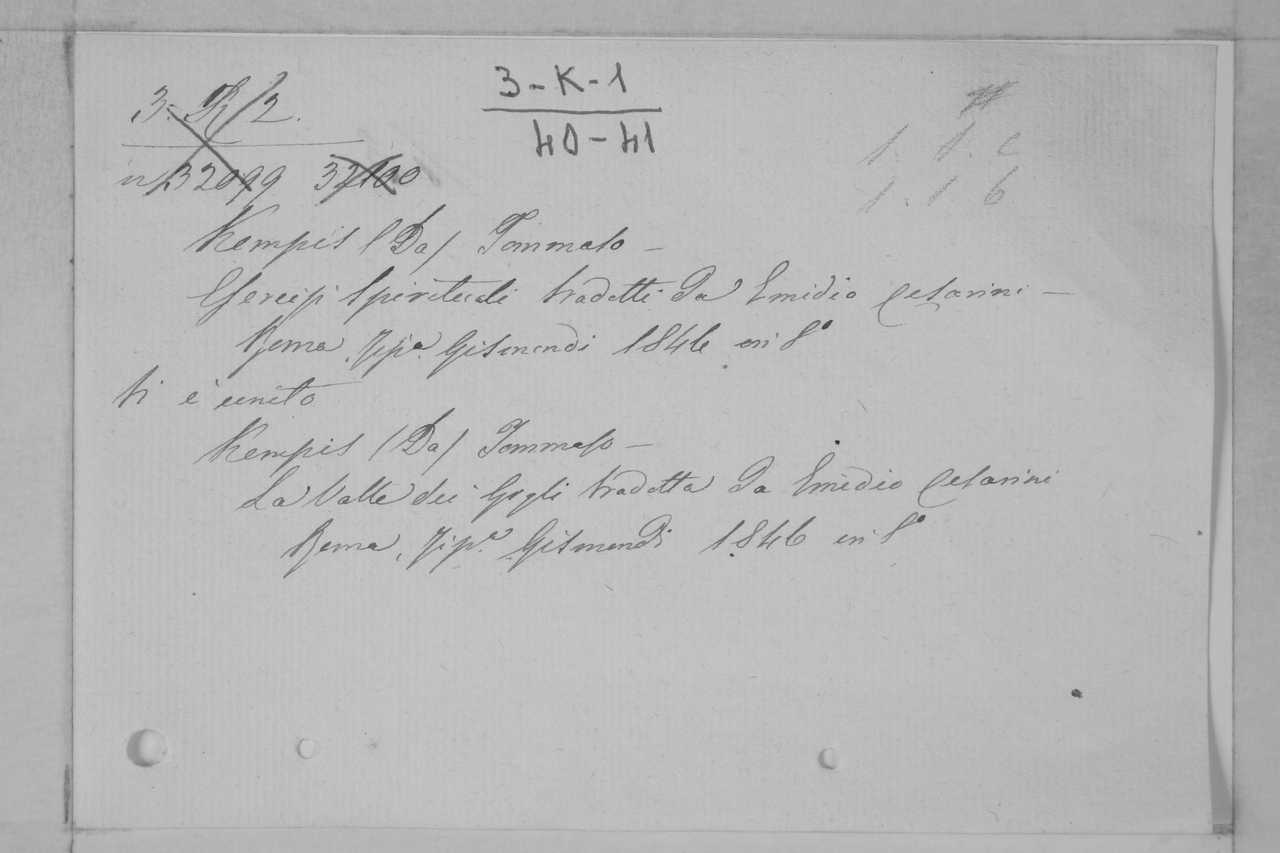 3-R/2.
3-K-1
40-41
n. 32099 32100
1. 1. c
1. 1 6
Kempis (Da) Tommaso —
Esercizj Spirituali tradotti da Emidio Cesarini —
Roma, Tipa. Gismondi 1846 in 8°
Vi è unito
Kempis (Da) Tommaso —
La Valle dei Gigli tradotta da Emidio Cesarini
Roma, Tipa. Gismondi 1846 in 8°